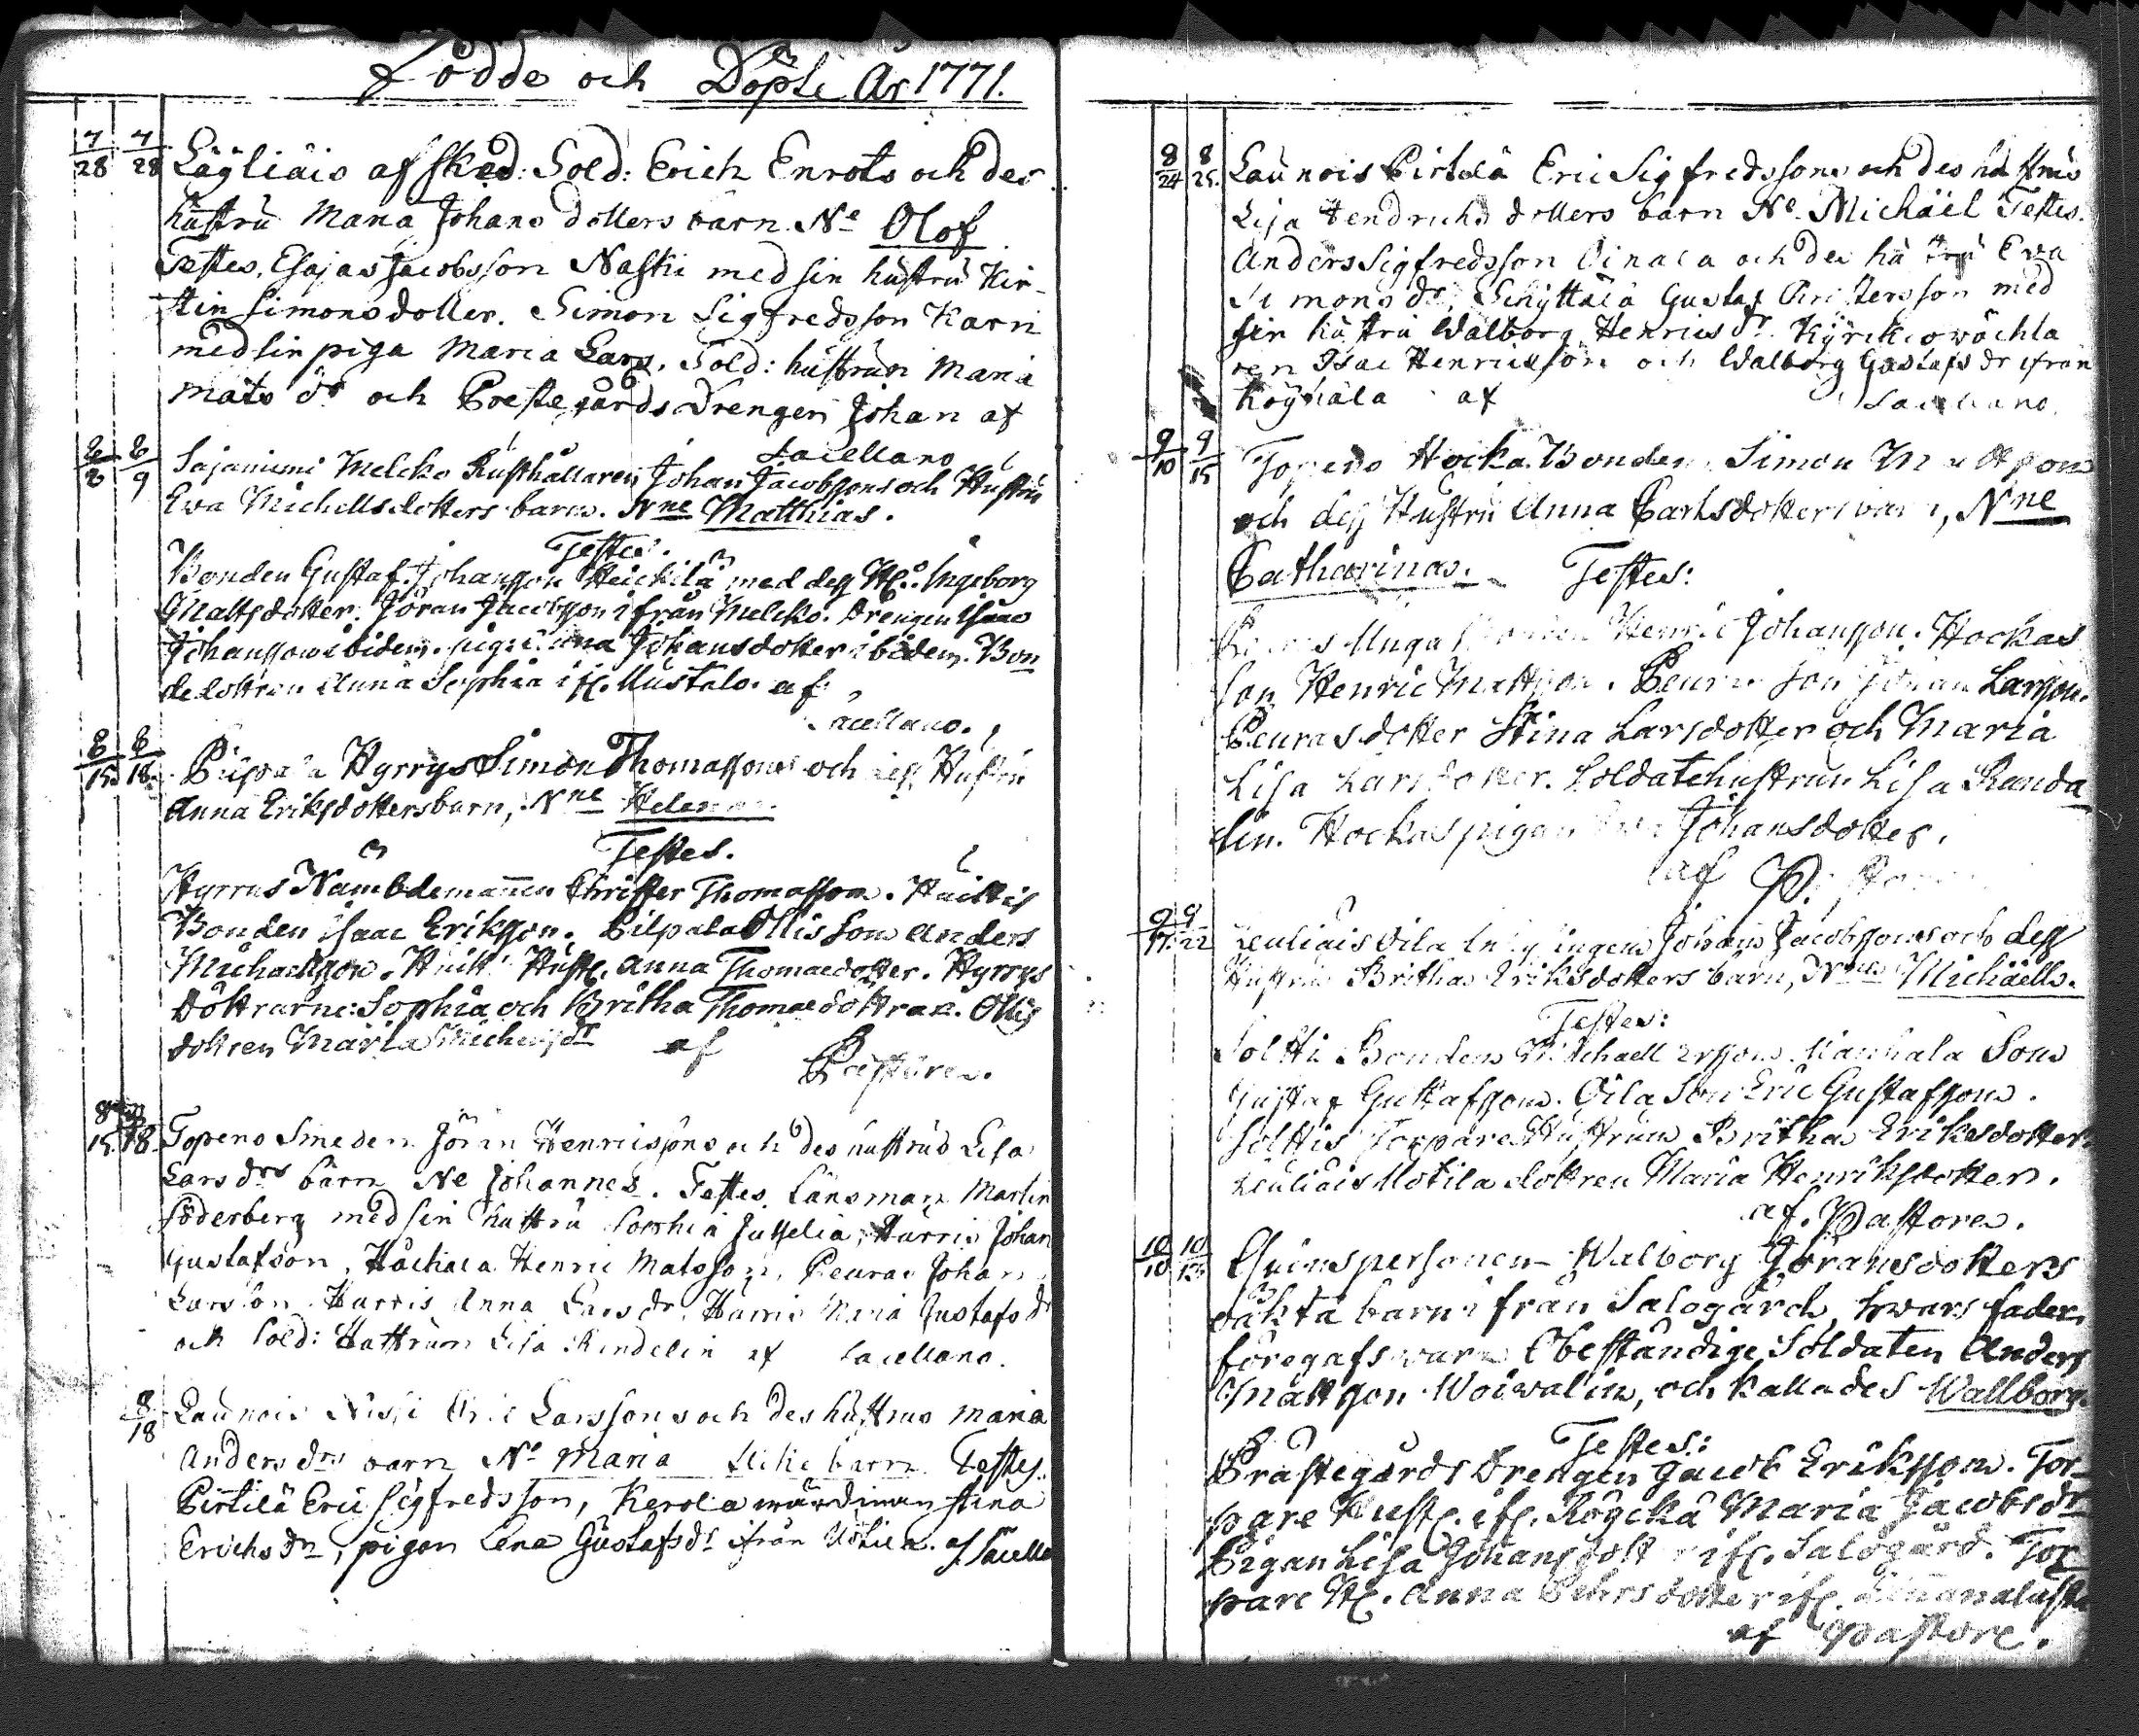 Födde och Döpte År 1771.
7/28 7/28 Lägliäis afsked: Sold: Erich Enrots och des
hustru Maria Johans dotters barn. Ne Olof
Testes, Esajas Jacobsson Naski med sin hustru Kir-
stin Simonsdotter. Simon Sigfredsson Karri
med sin piga Maria Lars. Sold: hustrun Maria
Mats dr och Prestegårds Drengen Johan af
Sacellano
8/8 8/9 Sajaniemi Melcko Rusthållaren Johan Jacobssons och Hustru
Ewa Michellsdotters barn. Nne Matthias.
Testes.
Bonden Gustaf Johansson Heickilä med dess H. Ingeborg
Mattsdotter. Jöran Jacobsson ifrån Melcko. Drengen Isaac
Johansson ibidem. pigan Johansdotter ibidem. Bon
dedottren Anna Sophia if. Mustalo. af
Sacellano.
8/15. 8/18. Pilpala Hyrrys Simon Thomassons och dess Hustru
Anna Eriksdotters barn, Nne Helena.
Testes.
Hyrrys Nämbdemannen Christer Thomasson. Huittis
Bonden Isaac Eriksson. Pilpala Ollis Son Anders
Michaelsson. Huitt Hust. Anna Thomaedotter. Hyrrys
döttrarne: Sophia och Britha Thomaedottrar. Ollis
dottren Maria Michelsdr af
Pastore.
8/15. 18. Topeno Smeden Jöran Henricssons och des hustrus Lisa
Lars drs barn Ne Johannes. Testes. Länsman Martin
Söderberg med sin hustru Sophia Juselia, Harris Johan
Gustafson, Henric Matsson, Peuras Johan
Larsson Harris Anna Lars dr. Harris Maria Gustafs dr
och Sold: Hustrun Lisa Rindelin af Sacellano.
8/18 Launois Nissi Eric Larssons och des hustrus Maria
Anders drs barn Ne Maria Testes.
Pirtilä Eric Sigfredsson, Kerola wärdinnan Stina
Erichs dr, pigan Lena Gustafsdr ifrån Uotila. af Sacella
8/24 8/25. Launois Pirtilä Eric Sigfredssons och des hustrus
Lisa Hendrichs dotters barn Ne. Michäel Testes.
Anders Sigfredsson Oinala och des hustru Ewa
Simons dr, Schyttälä Gustaf Christersson med
sin hustru Walborg Henrics dr. Kyrckiowächta
ren Isac Henricsson och Walborg Gustafs dr ifrån
af Sacellano.
9/10 9/15 Topeno Hocka Bonden Simon Mattssons
och dess Hustru Anna Carlsdotters barn, Nne
Catharina. Testes:
Unga Henric Johansson. Hockas
son Henric Mattsson. Peuras son Johan Larsson.
Peuras dotter Stina Larsdotter och Maria
Lisa Larsdotter. Soldatehustrun Lisa Randa
lin. Hockas pigan Johansdotter.
af Pastore
9/17. 9/22 Leuliais Oila Johan Jacobssons och dess
Hustru Britha Eriksdotters barn, Nne Michäell.
Testes:
Soltti Bonden Michaell Son
Gustaf Gustafsson. Oila Son Eric Gustafsson.
Solttis Torpare Hustrun Britha Eriksdotter.
Leuliais Uotila dottren Maria Henriksdotter.
af. Pastore.
10/10 10/13 Qvinspersonen Walborg Göransdotters
oächta barn ifrån Salogård, hwars fader
föregafs wara Obeständige Soldaten Anders
Mattsson Woiwalin, och kallades Wallborg.
Testes:
Prästegårds Drengen Jacob Eriksson. Tor-
pare Hust. if. Maria Jacobsdr
Pigan Lisa Johansdott if. Salogård. Tor-
pare H. Anna Pehrsdotter if.
af Pastore.